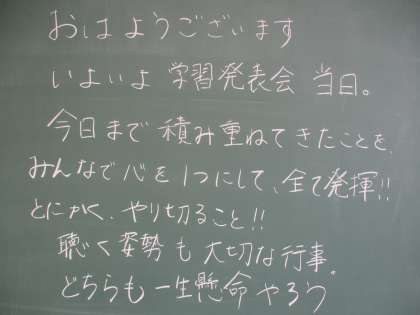 おはようございます
いよいよ 学習発表会 当日。
今日まで 積み重ねてきたことを、
みんなで心を1つにして、全て発揮!!
とにかく、やり切ること!!
聴く姿勢も大切な行事。
どちらも一生懸命やろう